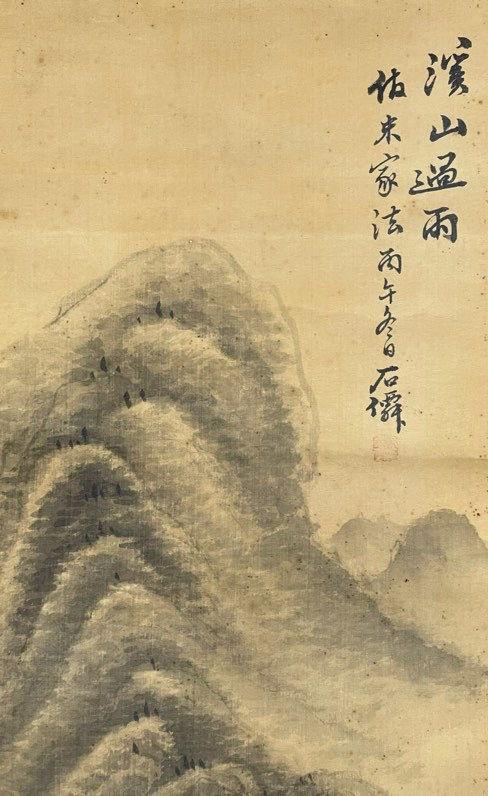 溪山過雨
仿米家法丙午冬日石僊